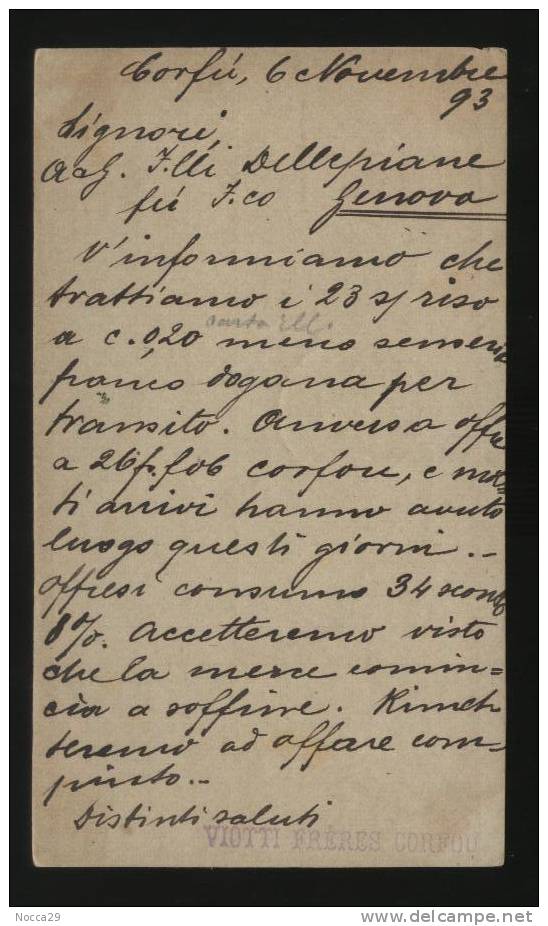 Corfú, 6 Novembre
93
Signori,
F.lli Dellepiane
fú F.co Genova
V'informiamo che
trattiamo i 23 s/ riso
a c. 0,20 meno senseria
franco dogana per
transito. Anversa offre
a 26 f. fob corfou, e mol
ti arrivi hanno avuto
luogo questi giorni.-
Offresi consumo 34 sconto
8%. Accetteremo visto
che la merce comin=
cia a soffrire. Rimet
teremo ad affare com-
piuto.-
Distinti saluti
VIOTTI FRÈRES CORFOU
Nocca29
www.delcampe.net